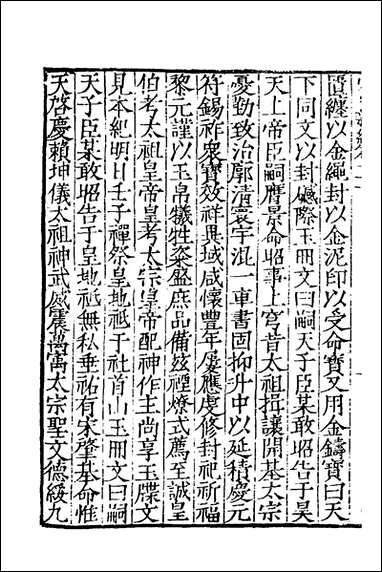 匱纏以金繩封以金泥印以受命寶又用金鑄寶曰天
下同文以封䃭際玉冊文曰嗣天子臣某敢昭告于昊
天上帝臣嗣膺景命昭事上穹昔太祖揖讓開基太宗
憂勤致治廓清寰宇混一車書固抑升中以延積慶元
符錫祚衆寶效祥異域咸懷豐年屢應虔修封祀祈福
黎元謹以玉帛犧牲粢盛庶品備兹禋燎式薦至誠皇
伯考太祖皇帝皇考太宗皇帝配神作主尚享玉牒文
見本紀明日天子禪祭皇地祗于社首山玉冊文曰嗣
天子臣某敢昭告于皇地祗無私垂祐有宋肇基命惟
天啓慶賴坤儀太祖神武威震萬㝢太宗聖文德綏九